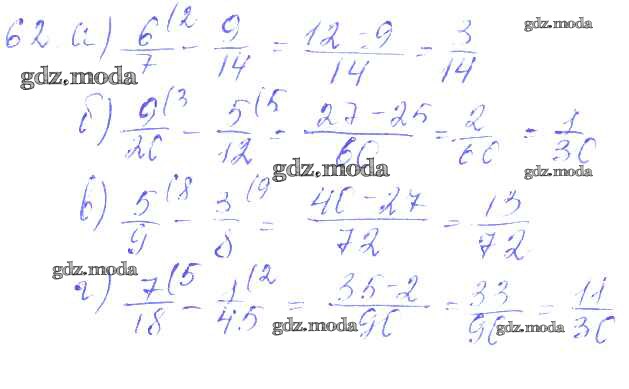 62. а) 6/7 (2 - 9/14 = 12-9/14 = 3/14
gdz.moda
gdz.moda
б) 9/20 (3 - 5/12 (5 = 27-25/60 = 2/60 = 1/30
gdz.moda
gdz.moda
в) 5/9 (8 - 3/8 (9 = 40-27/72 = 13/72
gdz.moda
г) 7/18 (5 - 1/45 (2 = 35-2/90 = 33/90 = 11/30
gdz.moda
gdz.moda